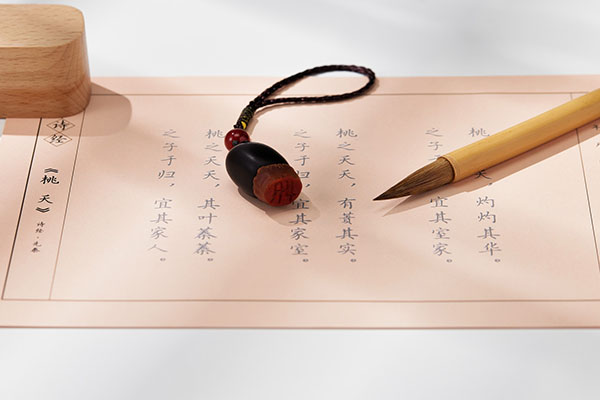 桃 ，灼灼其华。
之子 宜其室家。
桃之夭夭，有蕡其实。
之子于 宜其家室。
桃之夭夭，其叶蓁蓁。
之子于归，宜其家人。
诗经
《桃夭》
诗经·先秦